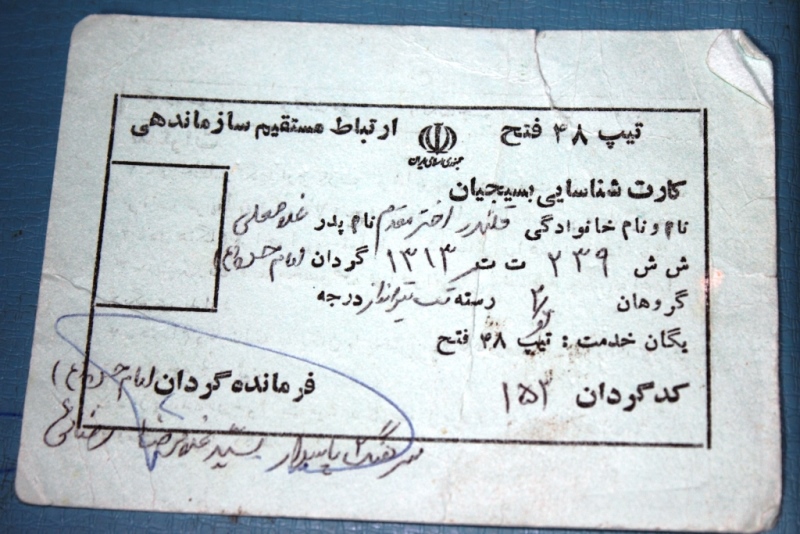 تیپ ۴۸ فتح ارتباط مستقیم سازماندهی
جمهوری اسلامی ایران
کارت شناسایی بسیجیان
نام و نام خانوادگی قلندر اختر مقدم نام پدر غلامعلی
ش ش ۲۳۹ ت ت ۱۳۱۳ گردان امام حسین (ع)
گروهان رسته تک تیرانداز درجه
یگان خدمت : تیپ ۴۸ فتح
کد گردان ۱۵۳ فرمانده گردان امام حسین (ع)
سرهنگ ۲ پاسدار سید غلامرضا